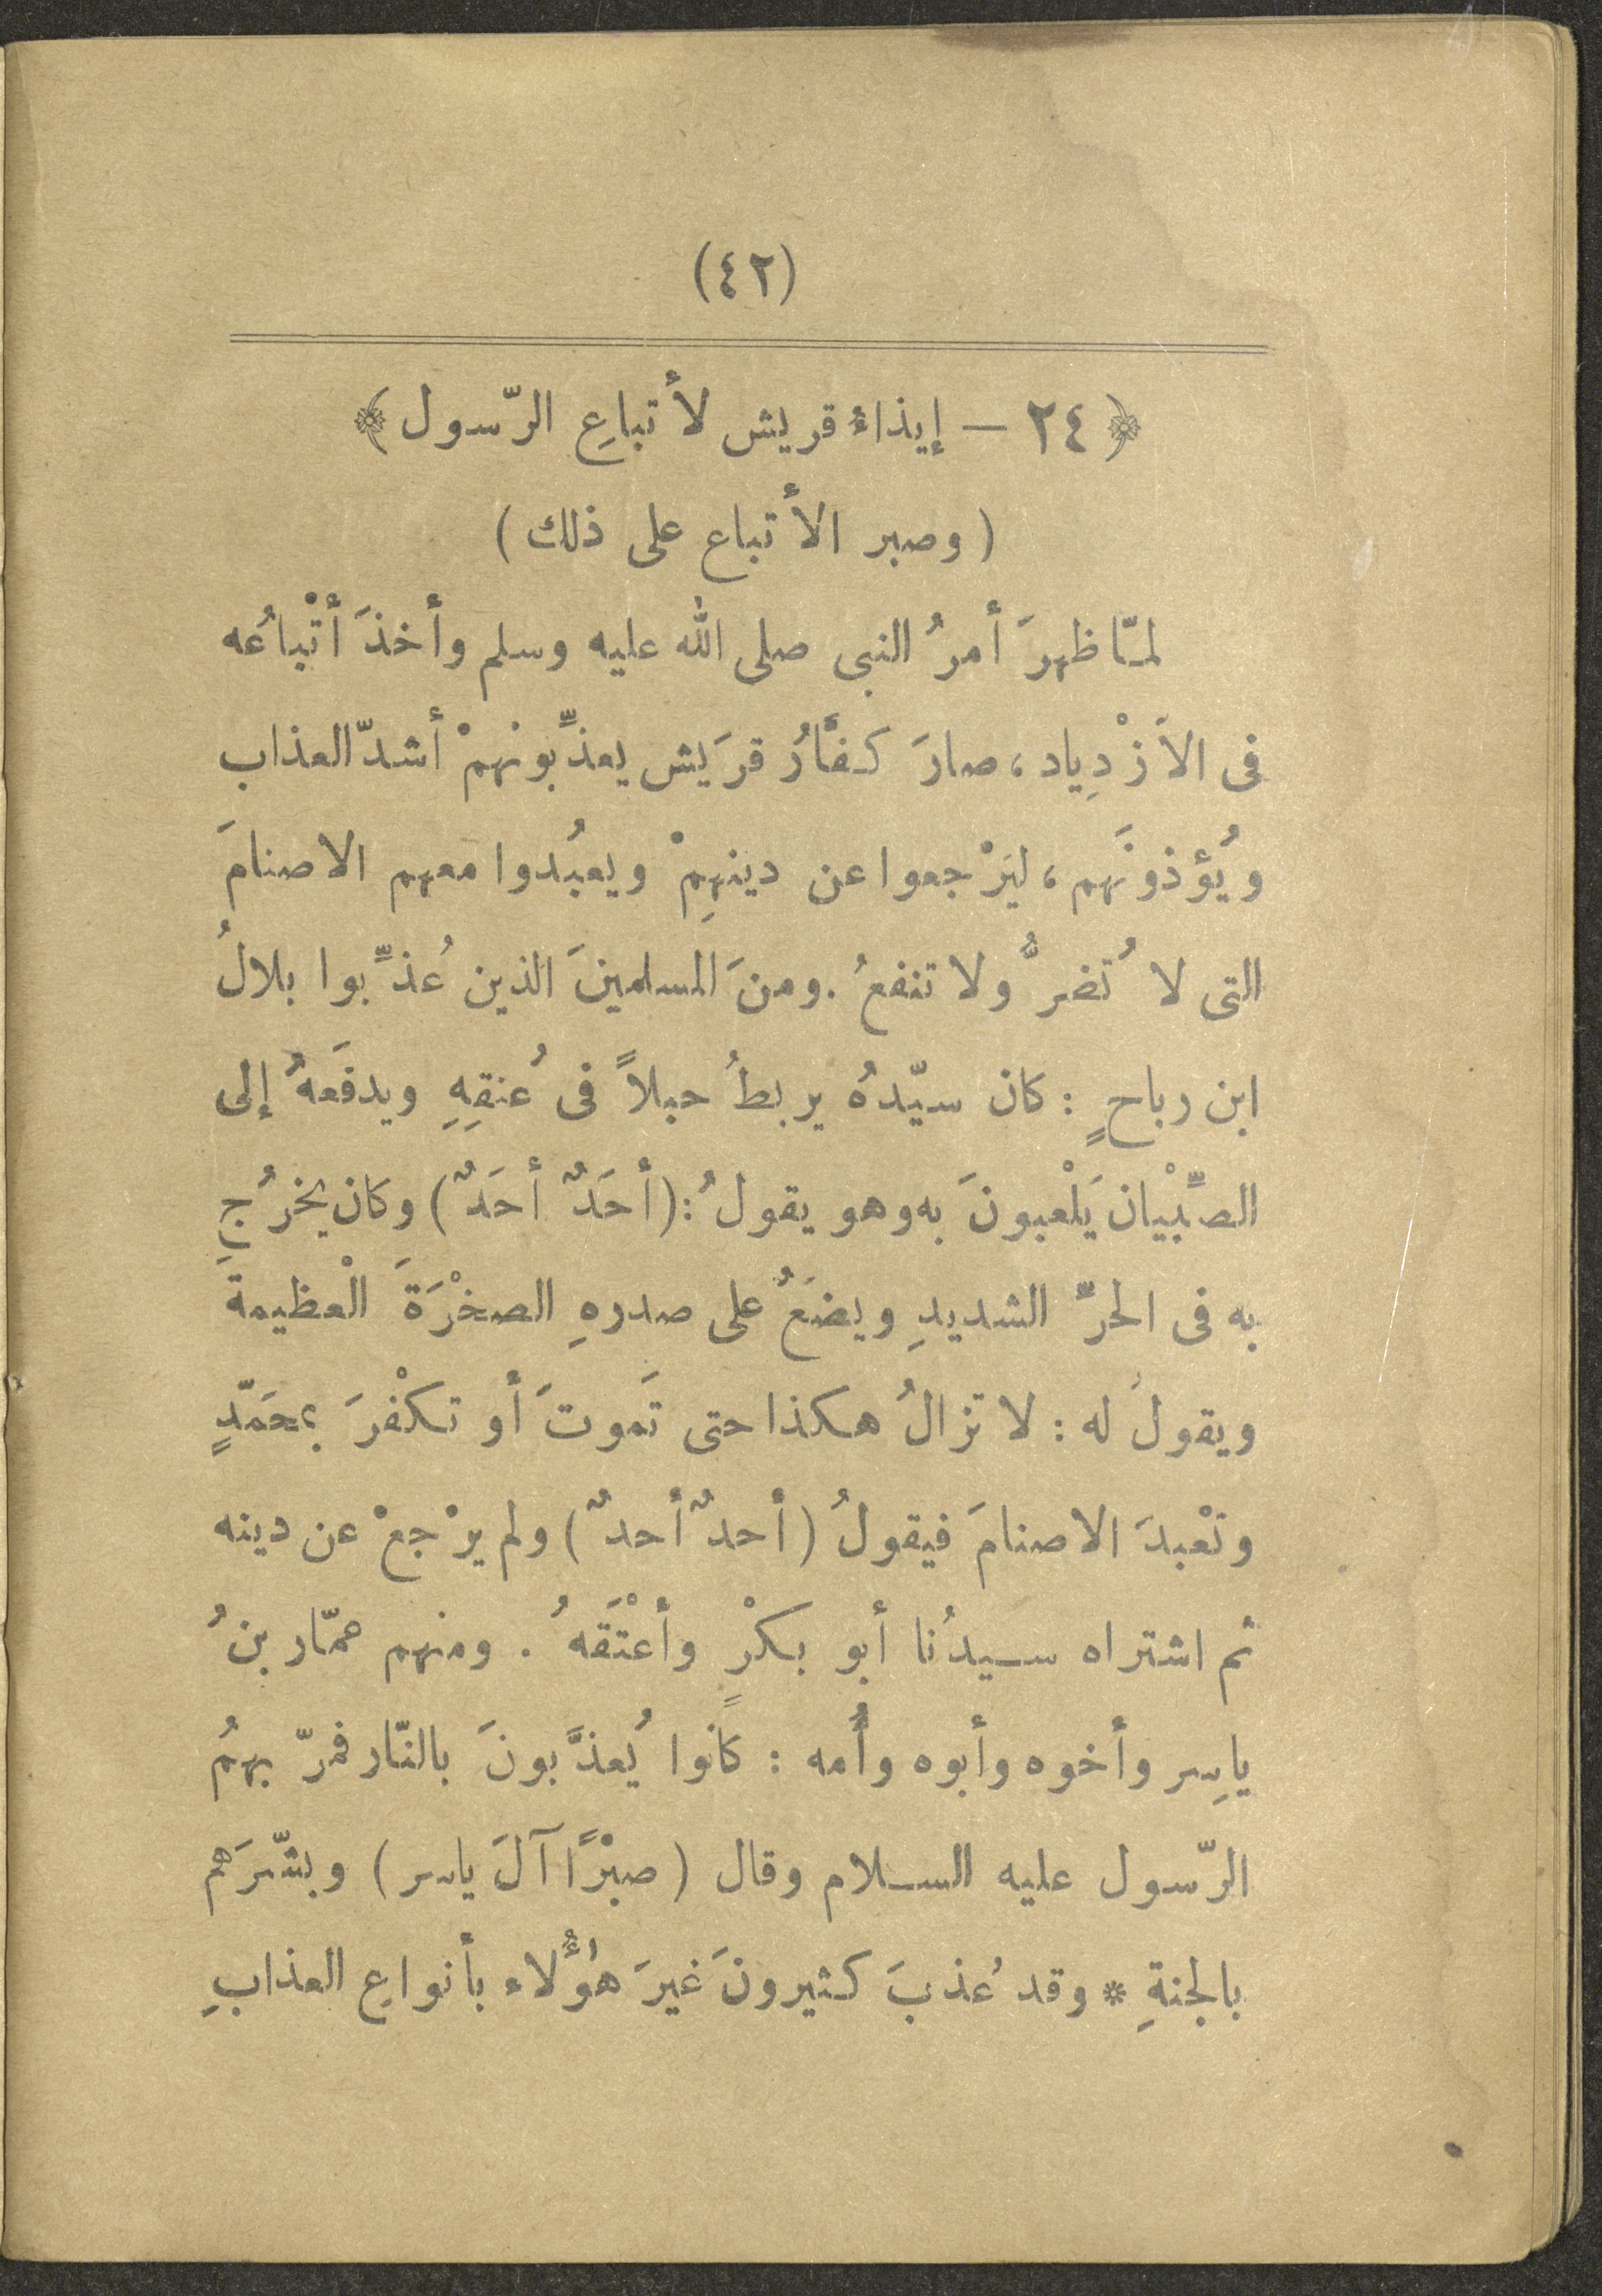 (٤٢)
﴿ ٢٤ — إيذاءُ قريش لأتباعِ الرّسول ﴾
( وصبر الأتباع على ذلك )
لمّا ظهرَ أمرُ النبى صلى الله عليه وسلم وأخذَ أتْباعُه
فى الاَزْدِياد، صارَ كفَّارُ قرَيش يعذِّبونهمْ أشدّ العذاب
ويُؤذونَهم، ليَرْجعوا عن دينهِمْ ويعبُدوا معهم الاصنامَ
التى لا تُضرُّ ولا تنفعُ. ومنَ المسلمينَ الذين عُذِّبوا بلالُ
ابن رباحٍ : كان سيّدهُ يربطُ حبلاً فى عُنقِهِ ويدفَعهُ إلى
الصِّبْيان يَلْعبونَ به وهو يقولُ : (أحَدٌ أحَدٌ) وكان يخرُج
به فى الحرِّ الشديدِ ويضَعُ على صدرهِ الصخْرَةَ الْعظيمةَ
ويقولُ له : لا تزالُ هكذا حتى تَموتَ أو تكفْرَ بمحَمّدٍ
وتعْبدَ الاصنامَ فيقولُ (أحدٌ أحدٌ) ولم يرْجعْ عن دينه
ثم اشتراه سيدُنا أبو بكرٍْ وأعْتَقَهُ . ومنهم عمّار بنُ
ياسِر وأخوه وأبوه وأُمه : كانوا يُعذَّبونَ بالنّار فمرّ بهمُ
الرّسول عليه السلام وقال ( صبْرًا آلَ ياسر ) وبشّرَهم
بالجنةِ * وقد عُذبَ كثيرونَ غيرَ هؤُلاء بأنواعِ العذابِ